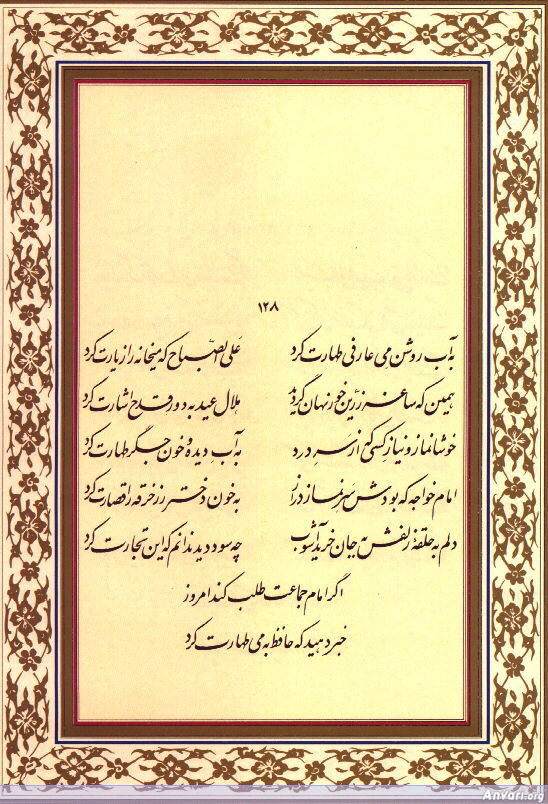 ۱۲۸
به آب روشن می عارفی طهارت کرد علی الصباح که میخانه را زیارت کرد
همین که ساغر زرین خور نهان گردید هلال عید به دور قدح اشارت کرد
خوشا نماز و نیاز کسی که از سر درد به آب دیده و خون جگر طهارت کرد
امام خواجه که بودش سر نماز دراز به خون دختر رز خرقه را قصارت کرد
دلم به حلقهٔ زلفش به جان خرید آشوب چه سود دید ندانم که این تجارت کرد
اگر امام جماعت طلب کند امروز
خبر دهید که حافظ به می طهارت کرد
Anvari.org